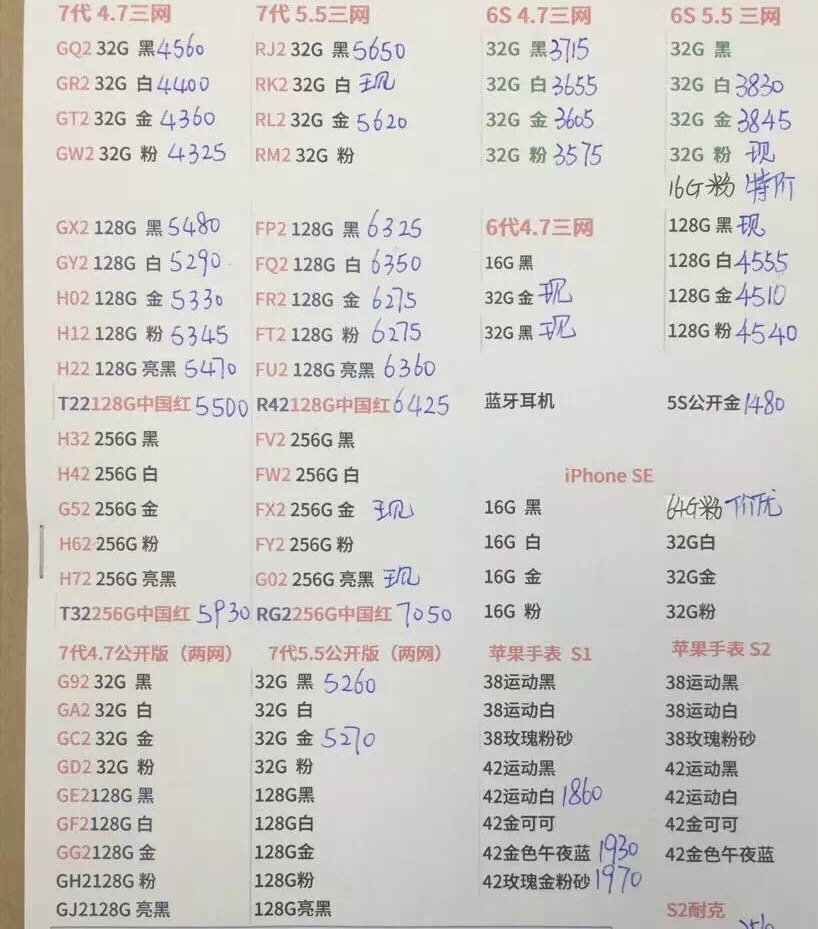 7代 4.7三网
GQ2 32G 黑 4560
GR2 32G 白 4400
GT2 32G 金 4360
GW2 32G 粉 4325
GX2 128G 黑 5480
GY2 128G 白 5290
H02 128G 金 5330
H12 128G 粉 5345
H22 128G 亮黑 5470
T22128G中国红 5500
H32 256G 黑
H42 256G 白
G52 256G 金
H62 256G 粉
H72 256G 亮黑
T32256G中国红 5930
7代4.7公开版（两网）
G92 32G 黑
GA2 32G 白
GC2 32G 金
GD2 32G 粉
GE2128G 黑
GF2128G 白
GG2128G 金
GH2128G 粉
GJ2128G 亮黑
7代 5.5三网
RJ2 32G 黑 5650
RK2 32G 白 现
RL2 32G 金 5620
RM2 32G 粉
FP2 128G 黑 6325
FQ2 128G 白 6350
FR2 128G 金 6275
FT2 128G 粉 6275
FU2 128G 亮黑 6360
R42128G中国红 6425
FV2 256G 黑
FW2 256G 白
FX2 256G 金 现
FY2 256G 粉
G02 256G 亮黑 现
RG2256G中国红 7050
7代5.5公开版（两网）
32G 黑 5260
32G 白
32G 金 5270
32G 粉
128G黑
128G白
128G金
128G粉
128G亮黑
6S 4.7三网
32G 黑 3715
32G 白 3655
32G 金 3605
32G 粉 3575
6代4.7三网
16G 黑
32G 金 现
32G 黑 现
蓝牙耳机
6S 5.5 三网
32G 黑
32G 白 3830
32G 金 3845
32G 粉 现
16G粉 特价
128G 黑 现
128G 白 4555
128G 金 4510
128G 粉 4540
5S公开金 1480
iPhone SE
16G 黑
16G 白
16G 金
16G 粉
64G粉 价优
32G白
32G金
32G粉
苹果手表 S1
38运动黑
38运动白
38玫瑰粉砂
42运动黑
42运动白 1860
42金可可
42金色午夜蓝 1930
42玫瑰金粉砂 1970
苹果手表 S2
38运动黑
38运动白
38玫瑰粉砂
42运动黑
42运动白
42金可可
42金色午夜蓝
S2耐克